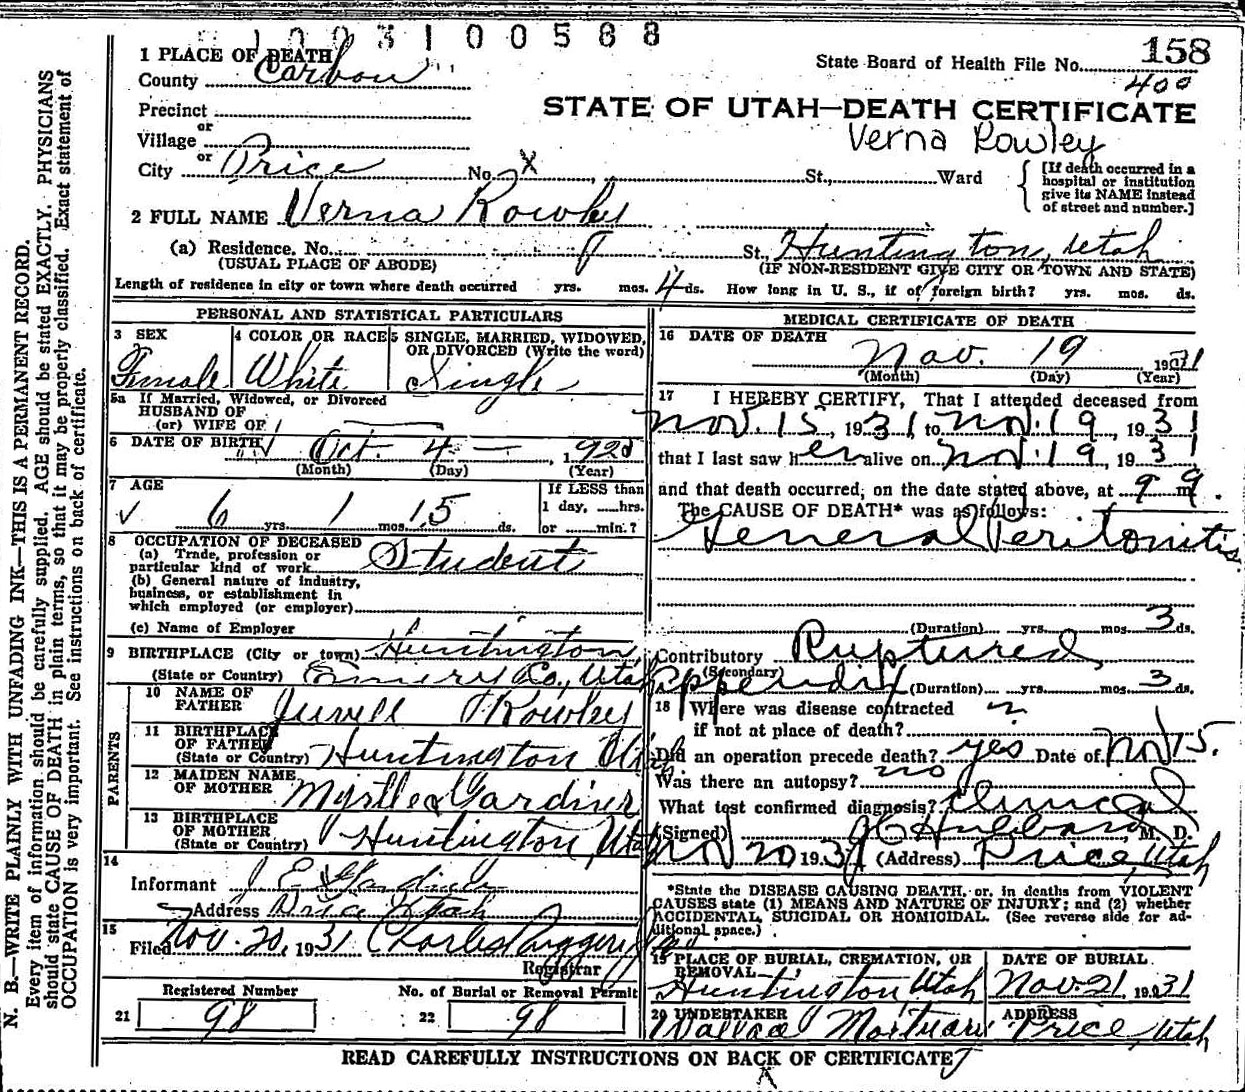 1003100568
1 PLACE OF DEATH
County Carbon
State Board of Health File No. 158
400
Precinct
STATE OF UTAH—DEATH CERTIFICATE
or
Village
Verna Rowley
or
City Price No. X St., Ward
[If death occurred in a hospital or institution give its NAME instead of street and number.]
2 FULL NAME Verna Rowley
(a) Residence. No. St., Huntington, Utah
(USUAL PLACE OF ABODE) (IF NON-RESIDENT GIVE CITY OR TOWN AND STATE)
Length of residence in city or town where death occurred yrs. mos. 4 ds. How long in U. S., if of foreign birth? yrs. mos. ds.
PERSONAL AND STATISTICAL PARTICULARS
3 SEX
Female
4 COLOR OR RACE
White
5 SINGLE, MARRIED, WIDOWED,
OR DIVORCED (Write the word)
Single
5a If Married, Widowed, or Divorced
HUSBAND OF
(or) WIFE OF
6 DATE OF BIRTH Oct. 4 — 1925
(Month) (Day) (Year)
7 AGE
6 yrs. 1 mos. 15 ds.
If LESS than
1 day, ....hrs.
or ....min.?
8 OCCUPATION OF DECEASED
(a) Trade, profession or
particular kind of work Student
(b) General nature of industry,
business, or establishment in
which employed (or employer)
(c) Name of Employer
9 BIRTHPLACE (City or town) Huntington,
(State or Country) Emery Co., Utah
PARENTS
10 NAME OF
FATHER Rowley
11 BIRTHPLACE
OF FATHER
(State or Country) Huntington Utah
12 MAIDEN NAME
OF MOTHER Myrtle Gardiner
13 BIRTHPLACE
OF MOTHER
(State or Country) Huntington, Utah
14
Informant J E Gardiner
Address Price Utah
15
Filed Nov. 20, 1931 Charles Ruggeri
Registrar
Registered Number
21 98
No. of Burial or Removal Permit
22 98
MEDICAL CERTIFICATE OF DEATH
16 DATE OF DEATH
Nov. 19 1931
(Month) (Day) (Year)
17 I HEREBY CERTIFY, That I attended deceased from
Nov. 15, 1931 to Nov. 19, 1931
that I last saw her alive on Nov. 19, 1931
and that death occurred, on the date stated above, at 9 m.
The CAUSE OF DEATH* was as follows:
General Peritonitis
(Duration) yrs. mos. 3 ds.
Contributory Ruptured
(Secondary)
Appendix (Duration) yrs. mos. 3 ds.
18 Where was disease contracted
if not at place of death?
Did an operation precede death? yes Date of Nov 15.
Was there an autopsy? no
What test confirmed diagnosis? Clinical
(Signed) J C Hubbard, M. D.
Nov 20 1931 (Address) Price, Utah
*State the DISEASE CAUSING DEATH, or, in deaths from VIOLENT
CAUSES state (1) MEANS AND NATURE OF INJURY; and (2) whether
ACCIDENTAL, SUICIDAL OR HOMICIDAL. (See reverse side for ad-
ditional space.)
19 PLACE OF BURIAL, CREMATION, OR
REMOVAL
Huntington Utah
DATE OF BURIAL
Nov. 21, 1931
20 UNDERTAKER
Wallace Mortuary
ADDRESS
Price, Utah
READ CAREFULLY INSTRUCTIONS ON BACK OF CERTIFICATE
N. B.—WRITE PLAINLY WITH UNFADING INK—THIS IS A PERMANENT RECORD.
Every item of information should be carefully supplied. AGE should be stated EXACTLY. PHYSICIANS
should state CAUSE OF DEATH in plain terms, so that it may be properly classified. Exact statement of
OCCUPATION is very important. See instructions on back of certificate.